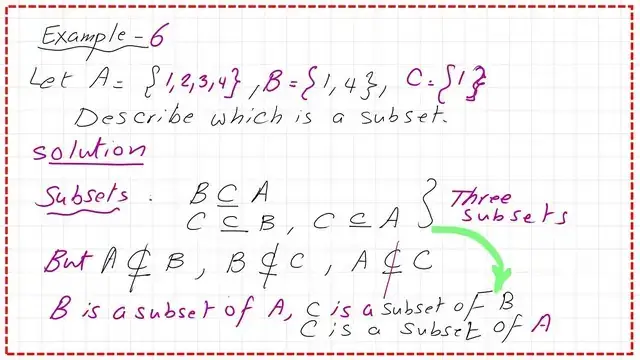 Example-6
Let A= {1,2,3,4}, B={1,4}, C={1}
Describe which is a subset.
Solution
Subsets : B ⊆ A
C ⊆ B, C ⊆ A } Three Subsets
But A ⊄ B, B ⊄ C, A ⊄ C
B is a subset of A, C is a subset of B
C is a subset of A